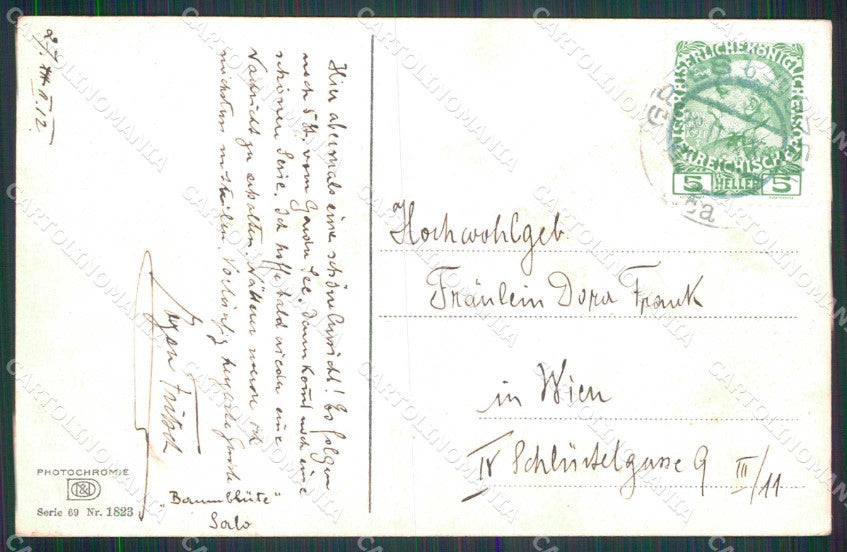 27. II. 12
Hier abermals eine schöne Ansicht! Es folgen
noch 5 St. vom Garda See. Dann kommt noch eine
schönere Serie. Ich hoffe bald wieder eine
Nachricht zu erhalten. Nächstens werde ich
Vorläufig herzliche Grüße
Fritsch
"Baumblüte"
Salo
PHOTOCHROMIE
Serie 69 Nr. 1823
KAISERLICHE KÖNIGLICHE
ÖSTERREICHISCHE
5 HELLER 5
Hochwohlgeb
Fräulein Dora Frank
in Wien
IV Schlüsselgasse 9 III/11
CARTOLINOMANIA